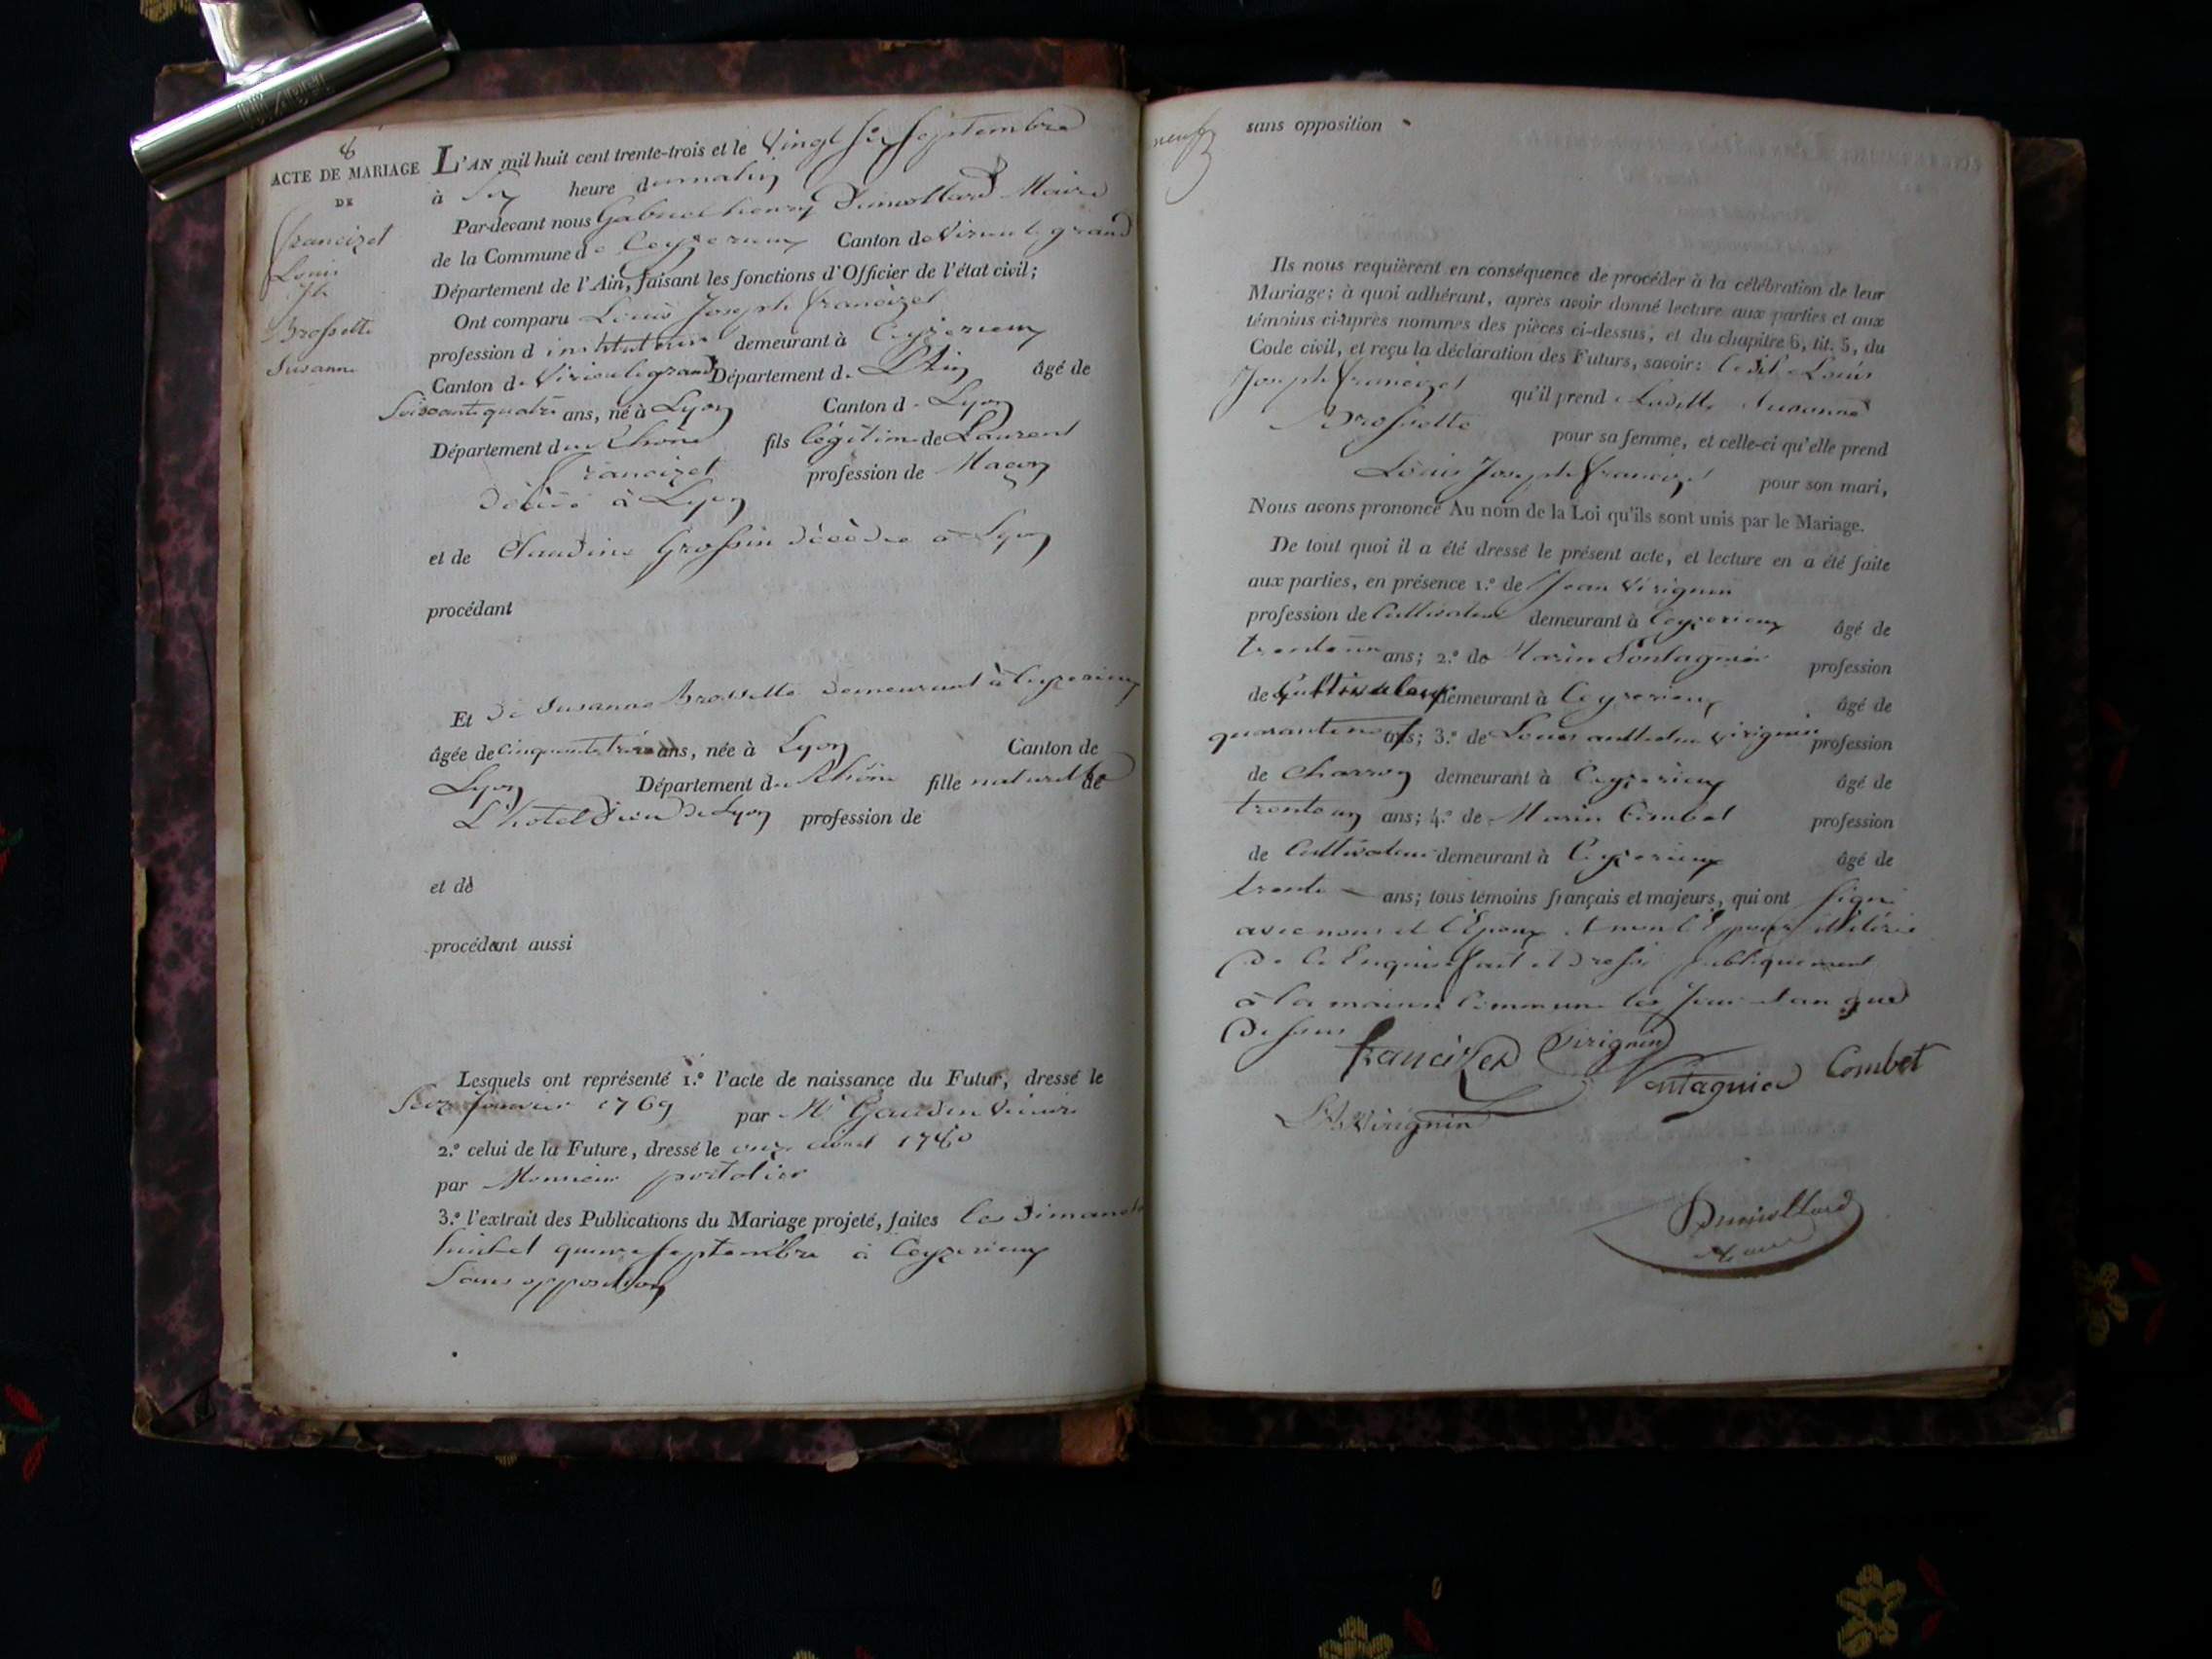 8
ACTE DE MARIAGE
DE
francizet
Louis
Jh
Brossette
Susanne
L'AN mil huit cent trente-trois et le Vingt six septembre
à Six heure du matin
Par-devant nous Gabriel henry Dumollard Maire
de la Commune de Ceyzerieux Canton de Virieu le grand
Département de l'Ain, faisant les fonctions d'Officier de l'état civil;
Ont comparu Louis Joseph francizet
profession d instituteur demeurant à Ceyzerieux
Canton de Virieu le grand Département de L'Ain âgé de
Soixante quatre ans, né à Lyon Canton de Lyon
Département du Rhône fils légitime de Laurent
francizet profession de Maçon
décédé à Lyon
et de Claudine Grossin décédée à Lyon
procédant
Et de Susanne Brossette demeurant à Ceyzerieux
âgée de cinquante trois ans, née à Lyon Canton de
Lyon Département du Rhône fille naturelle de
L'hotel Dieu de Lyon profession de
et de
procédant aussi
Lesquels ont représenté 1.º l'acte de naissance du Futur, dressé le
Seize Janvier 1769 par Mr Gaudin Vicaire
2.º celui de la Future, dressé le onze avril 1780
par Monsieur portalier
3.º l'extrait des Publications du Mariage projeté, faites les dimanche
huit et quinze septembre à Ceyzerieux
Sans opposition
neuf
sans opposition
Ils nous requièrent en conséquence de procéder à la célébration de leur
Mariage; à quoi adhérant, après avoir donné lecture aux parties et aux
témoins ci-après nommes des pièces ci-dessus, et du chapitre 6, tit. 5, du
Code civil, et reçu la déclaration des Futurs, savoir: ledit Louis
Joseph francizet qu'il prend Ladite Susanne
Brossette pour sa femme, et celle-ci qu'elle prend
Louis Joseph francizet pour son mari,
Nous avons prononcé Au nom de la Loi qu'ils sont unis par le Mariage.
De tout quoi il a été dressé le présent acte, et lecture en a été faite
aux parties, en présence 1.º de Jean Virignin
profession de Cultivateur demeurant à Ceyzerieux âgé de
trente un ans; 2.º de Marin Vontagnier profession
de Cultivateur demeurant à Ceyzerieux âgé de
quarante neuf ans; 3.º de Louis anthelme Virignin profession
de Charron demeurant à Ceyzerieux âgé de
trente un ans; 4.º de Marin Combet profession
de Cultivateur demeurant à Ceyzerieux âgé de
trente ans; tous témoins français et majeurs, qui ont signé
avec nous et l'Epoux et non l'Epouse illitérée
de ce Enquise fait et dressé publiquement
à la maison Commune les jour et an que
dessus
francizet Virignin
Vontagnier Combet
Virignin
Dumollard
Maire